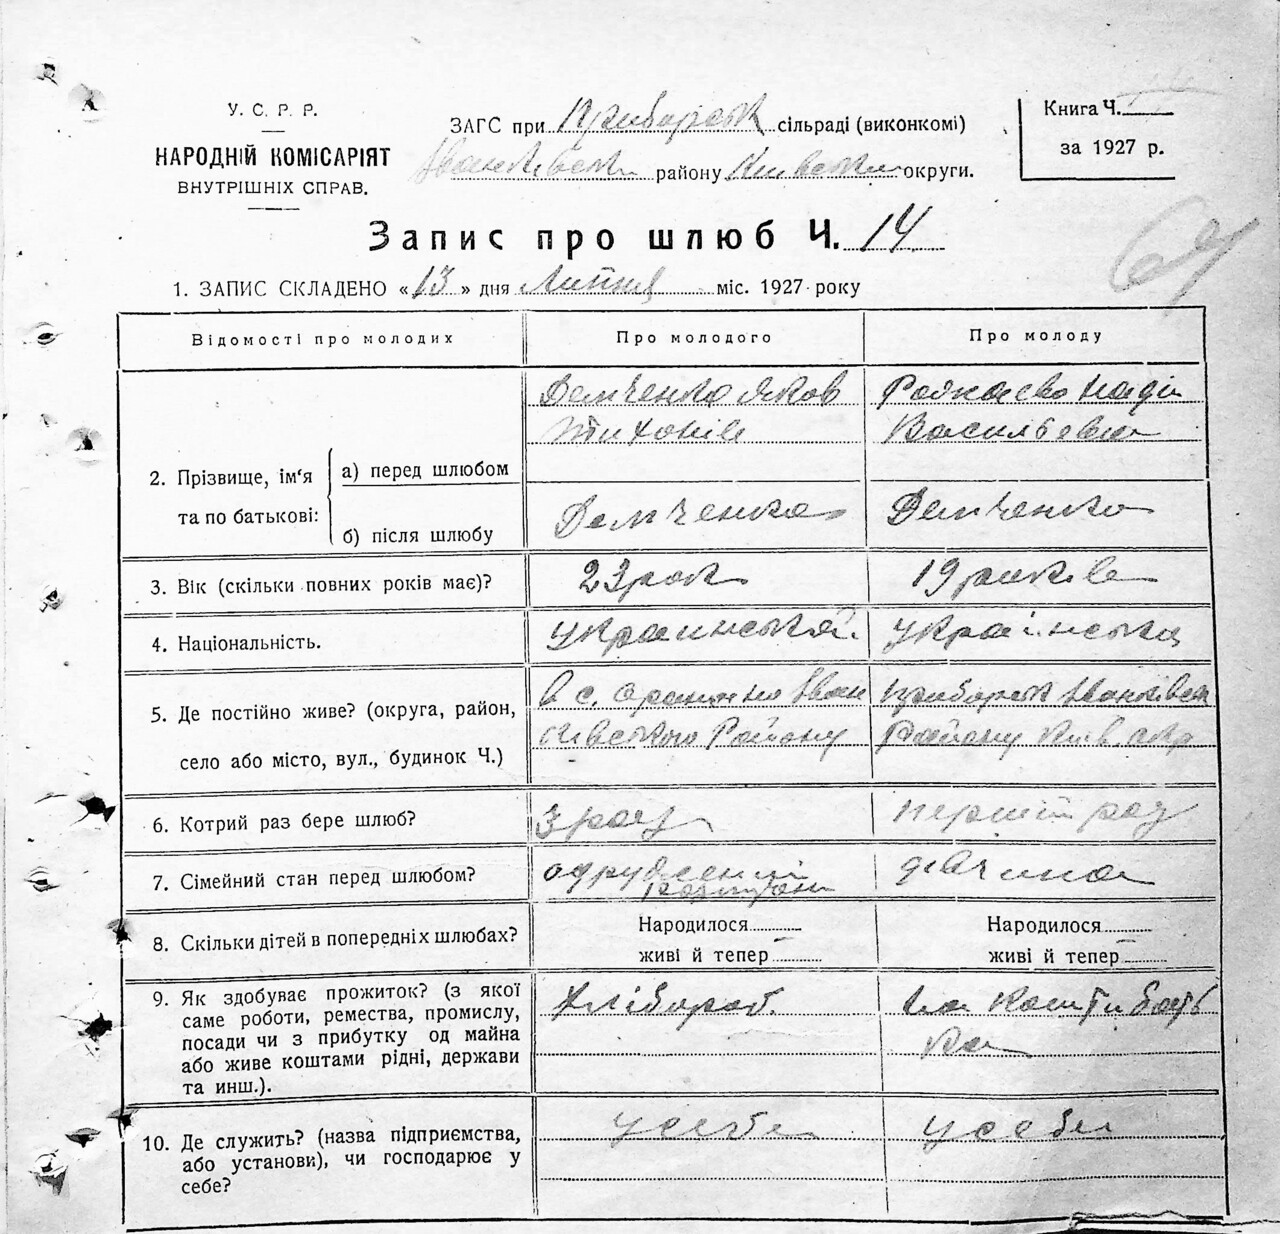 У. С. Р. Р.
НАРОДНІЙ КОМІСАРІЯТ
ВНУТРІШНІХ СПРАВ.
ЗАГС при Прибірськ сільраді (виконкомі)
Іванківськ району Київськ округи.
Книга Ч.
за 1927 р.
Запис про шлюб Ч. 14
1. ЗАПИС СКЛАДЕНО «13» дня Липня міс. 1927 року
Відомості про молодих Про молодого Про молоду
Демченко Яков Надія
Тихонів Васильевна
2. Прізвище, ім‘я та по батькові:
а) перед шлюбом
б) після шлюбу Демченко Демченко
3. Вік (скільки повних років має)? 23 рок 19 років
4. Національність. Украинський. Українська
5. Де постійно живе? (округа, район, в с. Іван Прибірськ Іванківск
село або місто, вул., будинок Ч.) ківського Району Району Київ. окр
6. Котрий раз бере шлюб? 3 раз перший раз
7. Сімейний стан перед шлюбом? одружений дівчина
8. Скільки дітей в попередніх шлюбах?
Народилося – Народилося –
живі й тепер – живі й тепер –
9. Як здобуває прожиток? (з якої хлібороб. на кошти бать
саме роботи, ремества, промислу, ка
посади чи з прибутку од майна
або живе коштами рідні, держави
та инш.).
10. Де служить? (назва підприємства, у себе у себе
або установи), чи господарює у
себе?